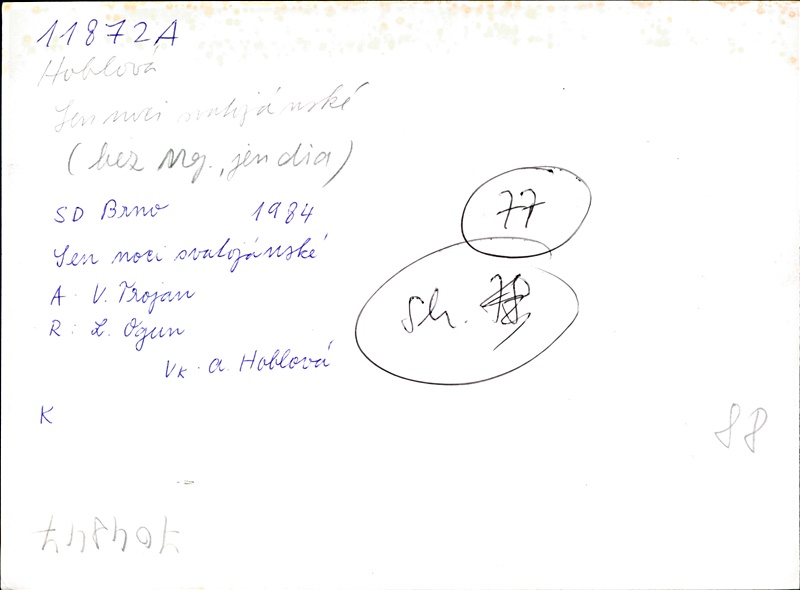 11872A
Hoblová
Sen noci svatojánské
(bez neg., jen dia)
SD Brno 1984
Sen noci svatojánské
A: V. Trojan
R: L. Ogun
Vk: A. Hoblová
K
77
Sh.
88